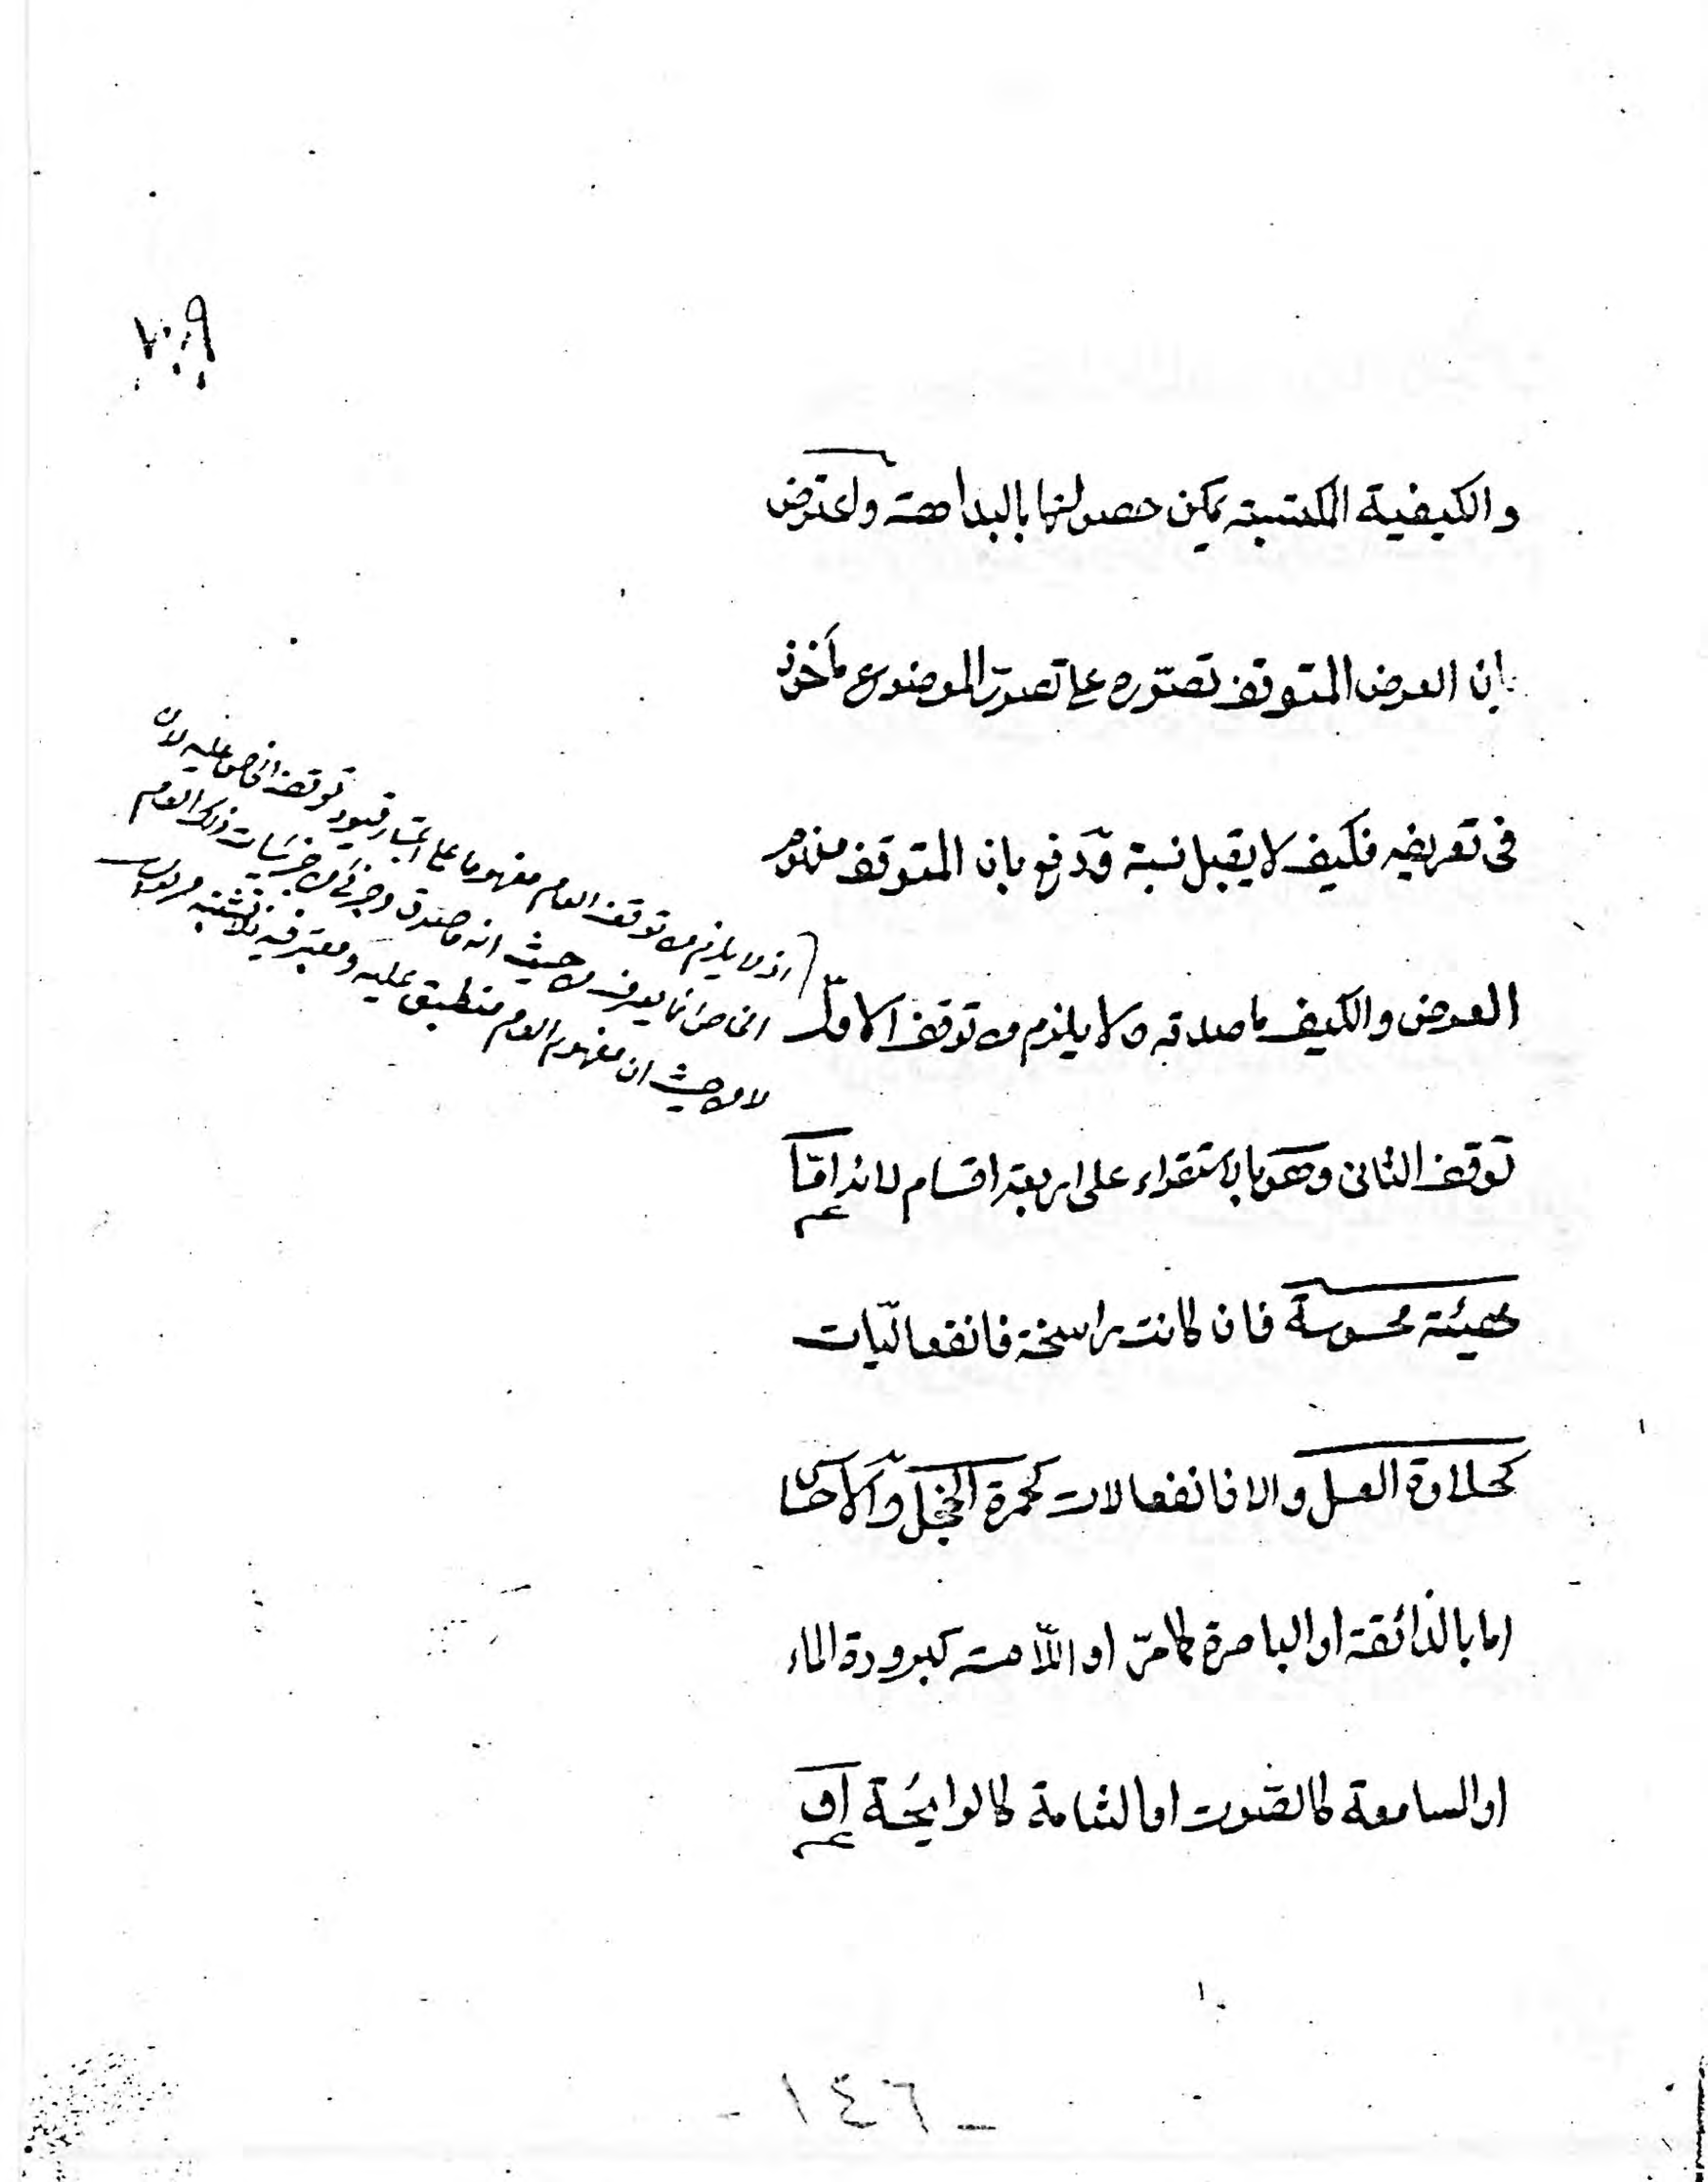 ٧٠٩
والكيفية المكتسبة يمكن حصولها بالبداهة واعترض
بان العرض المتوقف تصوره على تصور الموضوع مأخوذ
فى تعريفه فكيف لا يقبل نسبة ودفع بان المتوقف مفهوم
العرض والكيف ما صدقه ولا يلزم من توقف الاول
توقف الثانى وهو بالاستقراء على اربعة اقسام لانه امّا
هيئة محسوسة فان كانت راسخة فانفعاليّات
كحلاوة العسل والا فانفعالات كحمرة الخجل والاحساس
اما بالذائقة او الباصرة كما مرّ او اللامسة كبرودة الماء
او السامعة كالصوت او الشامة كالرايحة او
اذ لا يلزم من توقف العام مفهوما على اعتبار قيود توقف الخاص عليه لان
الخاص انما يعرف من حيث انه ما صدق وجزئى من جزئيات ذلك العام
لا من حيث ان مفهوم العام منطبق عليه ومعتبر فيه فلا تشتبه
- ١٤٦ -